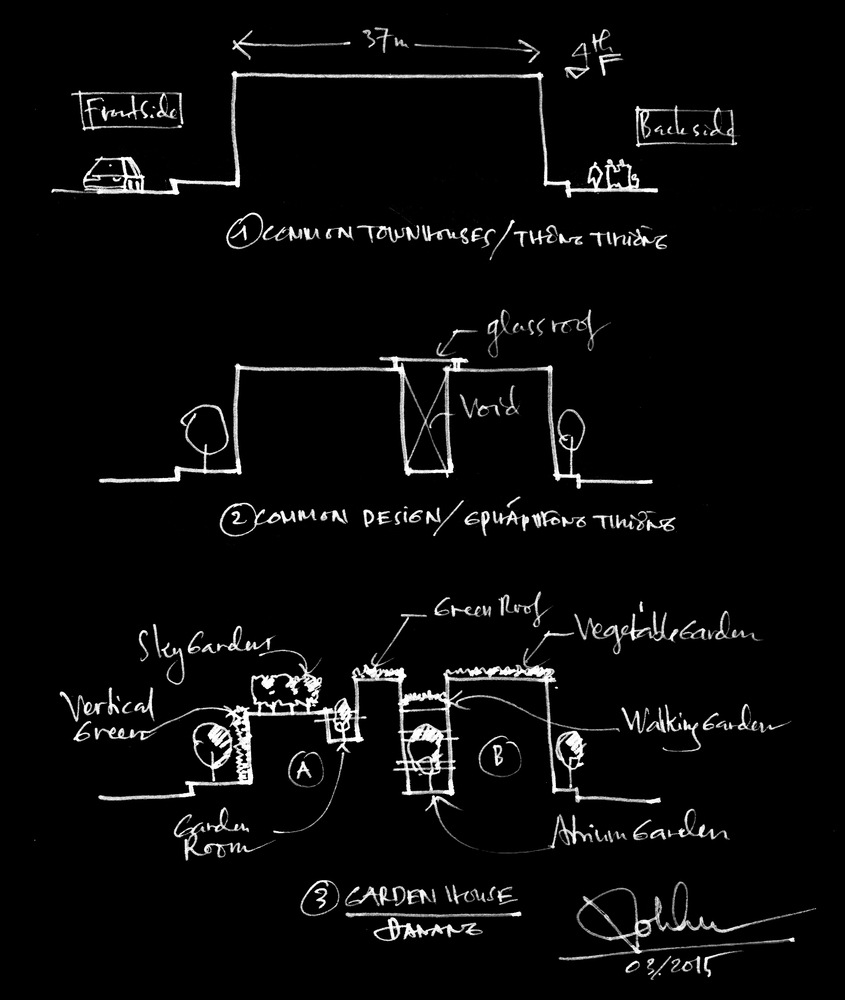 37m
4th
F
Frontside
Backside
1 COMMON TOWNHOUSES / THÔNG THƯỜNG
glass roof
Void
2 COMMON DESIGN /
Green Roof
Sky Garden
Vegetable Garden
Vertical
Green
Walking Garden
A
B
Garden
Room
Atrium Garden
3 GARDEN HOUSE
DANANG
03/2015